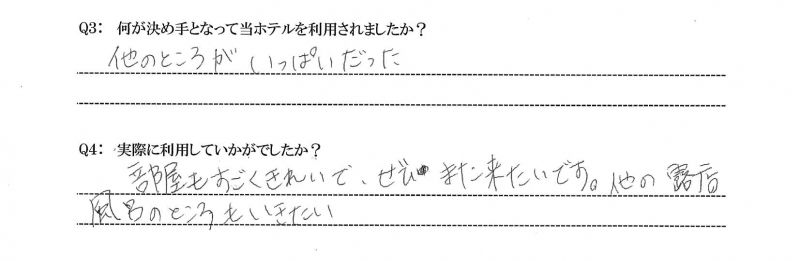 Q3： 何が決め手となって当ホテルを利用されましたか？
他のところが いっぱいだった
Q4： 実際に利用していかがでしたか？
部屋もすごくきれいで、ぜひ また来たいです。他の 露店
風呂のところもいきたい